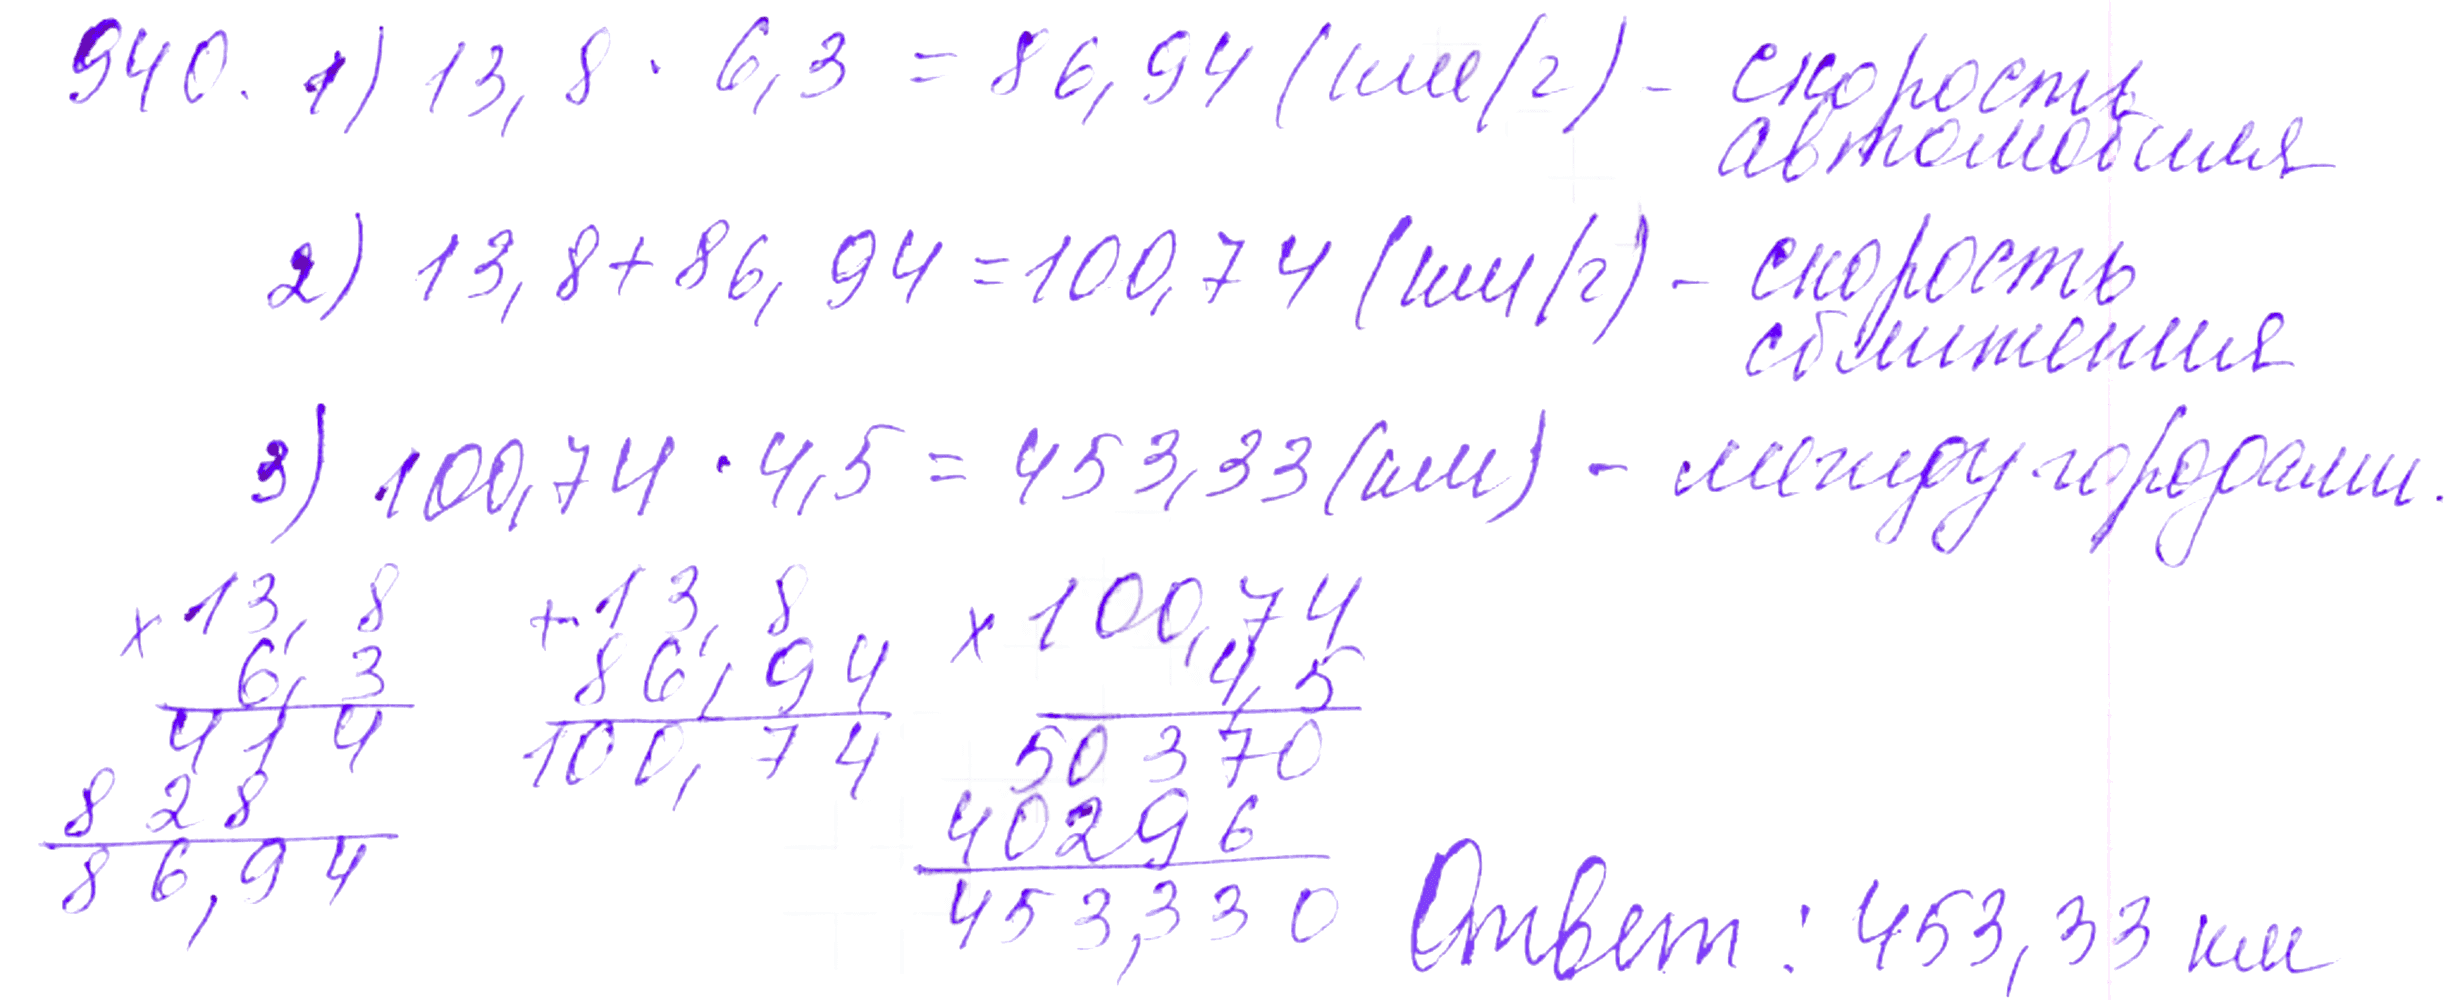 940. 1) 13,8 · 6,3 = 86,94 (км/г) - скорость
автомобиля
2) 13,8 + 86,94 = 100,74 (км/г) - скорость
сближения
3) 100,74 · 4,5 = 453,33 (км) - между городами.
× 13,8
6,3
414
828
86,94
+ 13,8
86,94
100,74
× 100,74
4,5
50370
40296
453,330
Ответ: 453,33 км